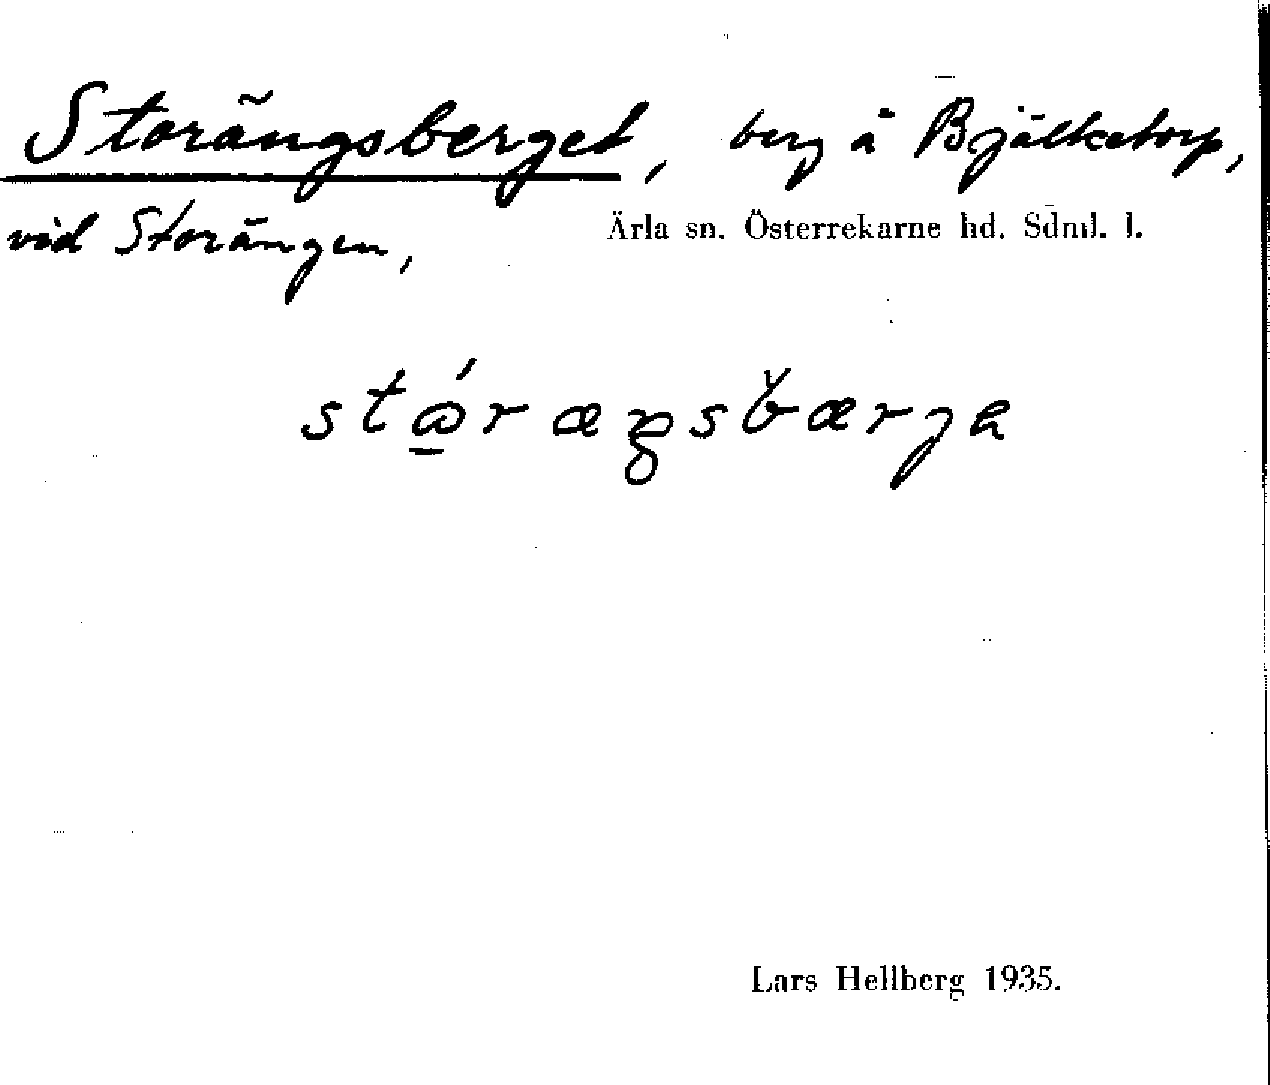 Storängsberget, berg å Bjälketorp,
vid Storängen,
Ärla sn. Österrekarne hd. Sdml. l.
Lars Hellberg 1935.